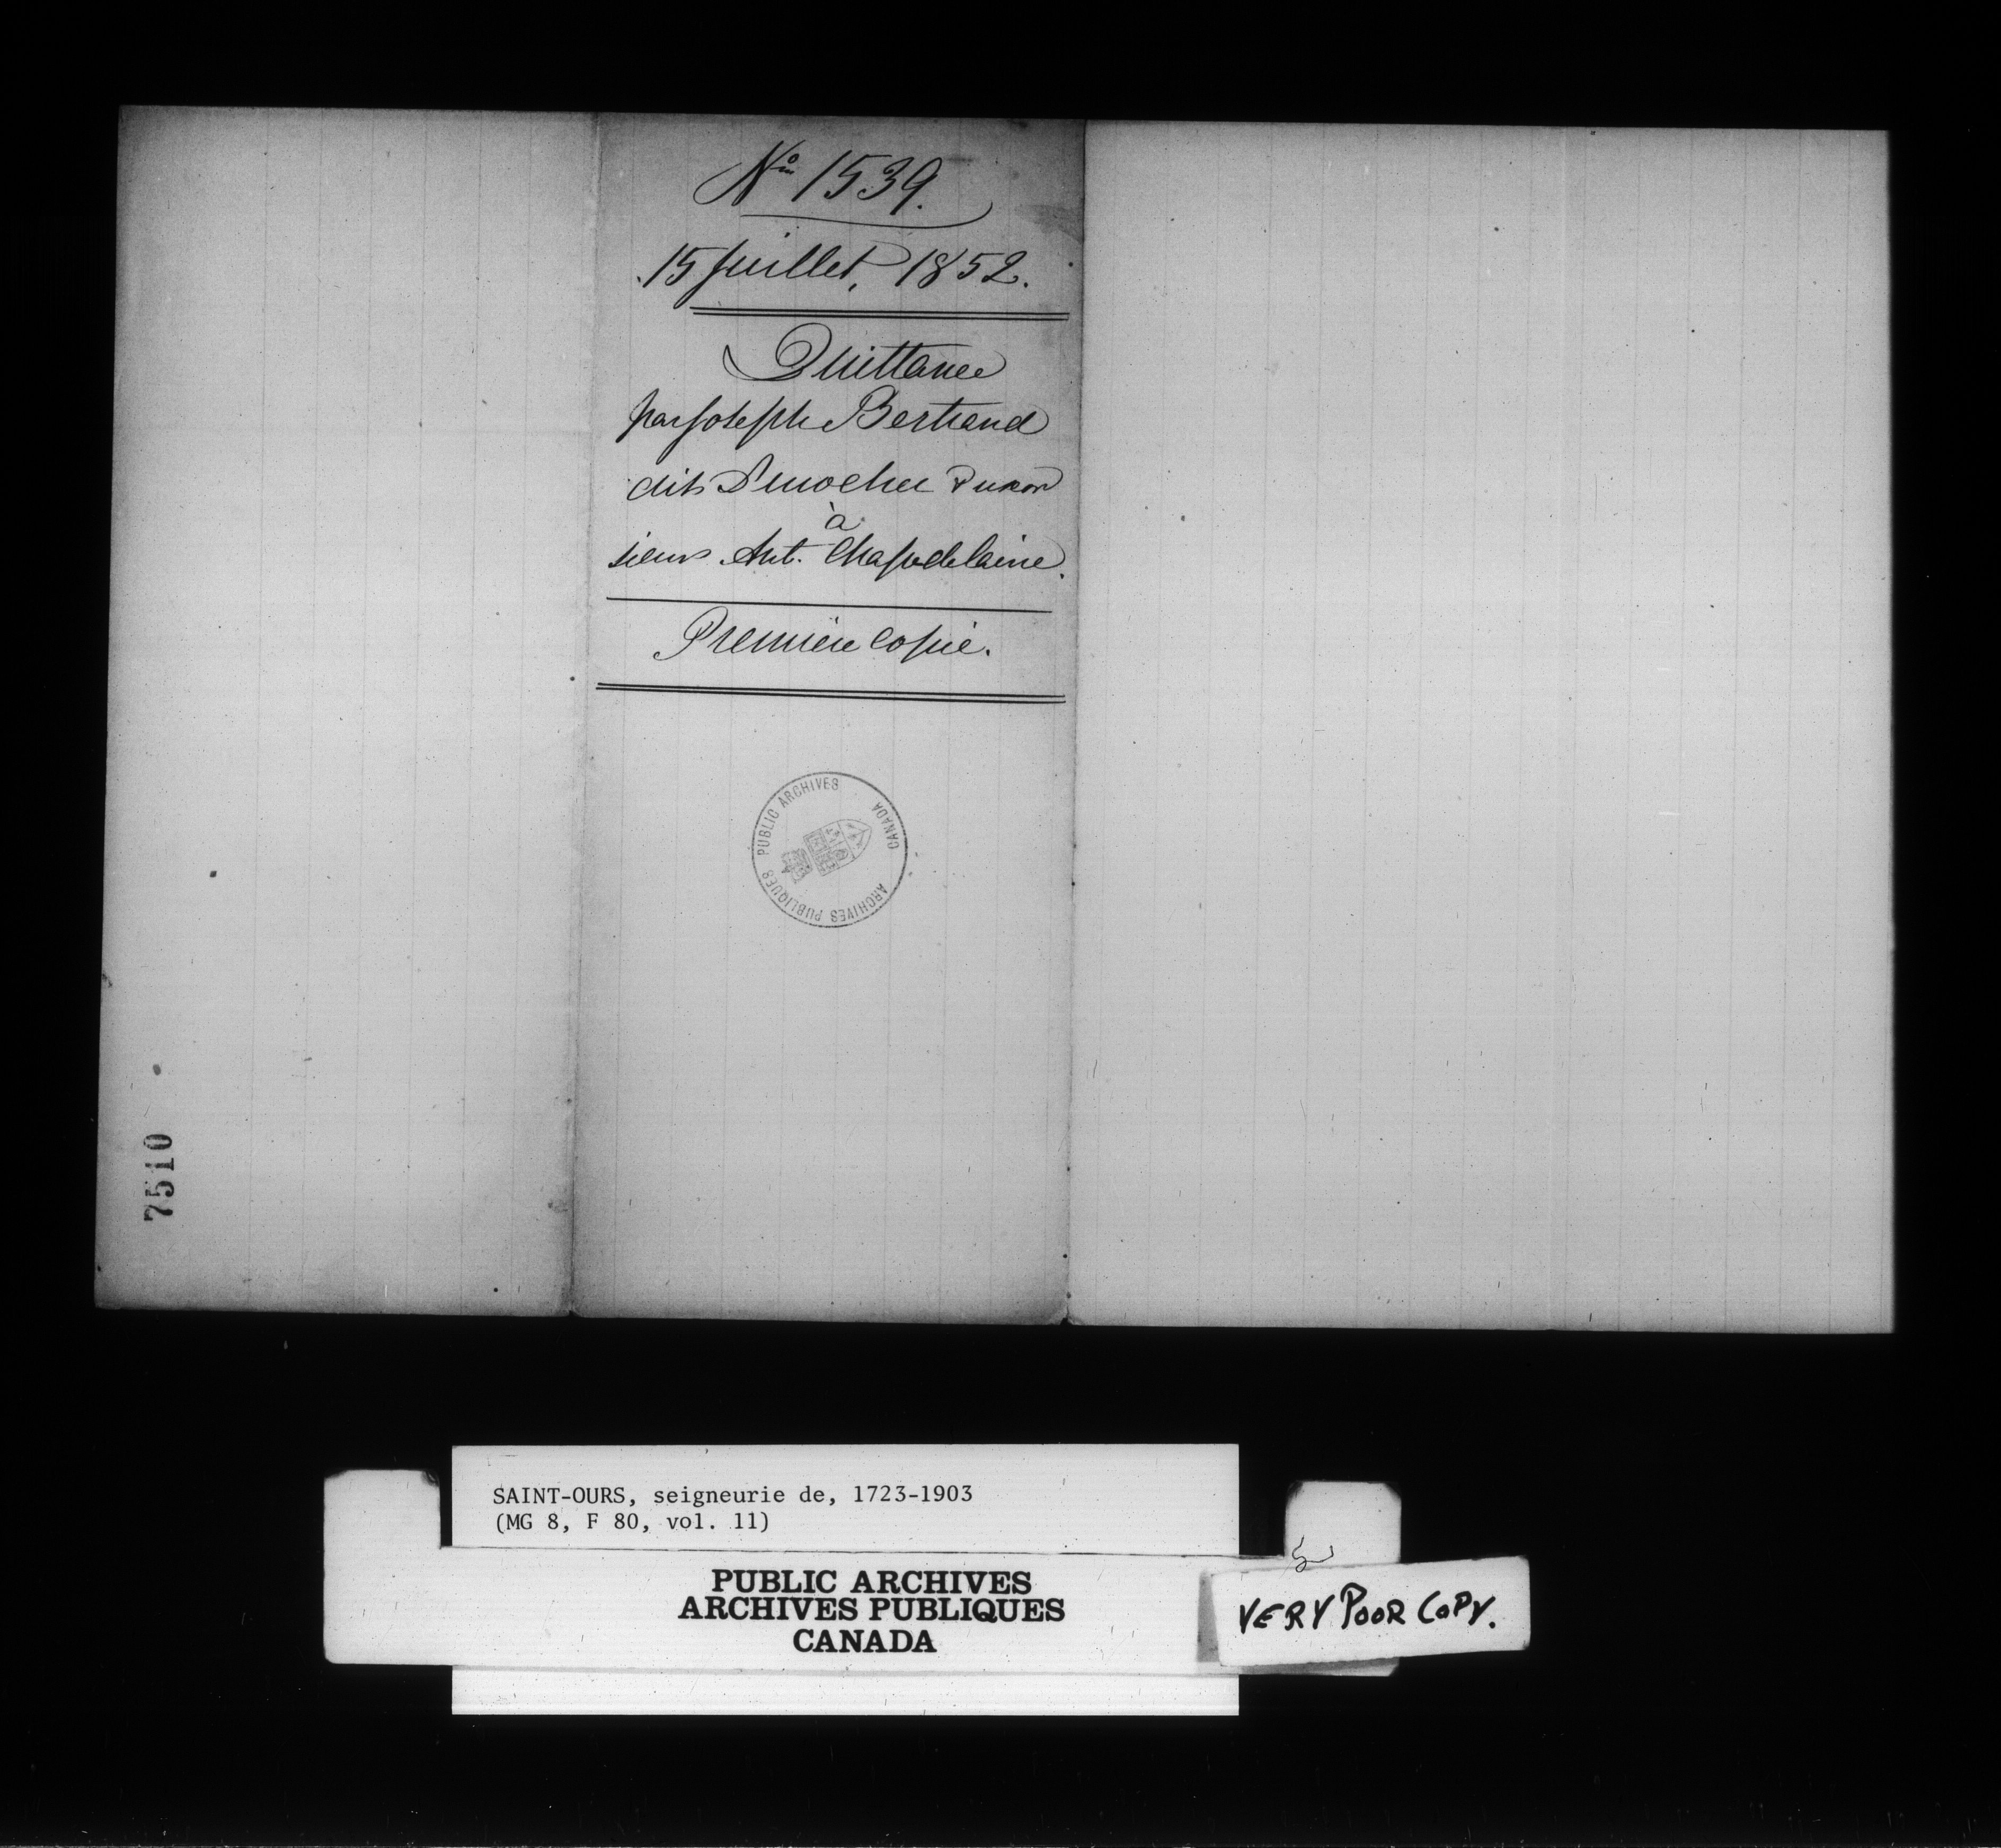 No 1539.
15 Juillet, 1852.
Quittance
par Joseph Bertrand
dit
à
sieur Ant. Chapdelaine.
Première Copie.
PUBLIC ARCHIVES CANADA
ARCHIVES PUBLIQUES
7510
SAINT-OURS, seigneurie de, 1723-1903
(MG 8, F 80, vol. 11)
PUBLIC ARCHIVES
ARCHIVES PUBLIQUES
CANADA
VERY POOR COPY.